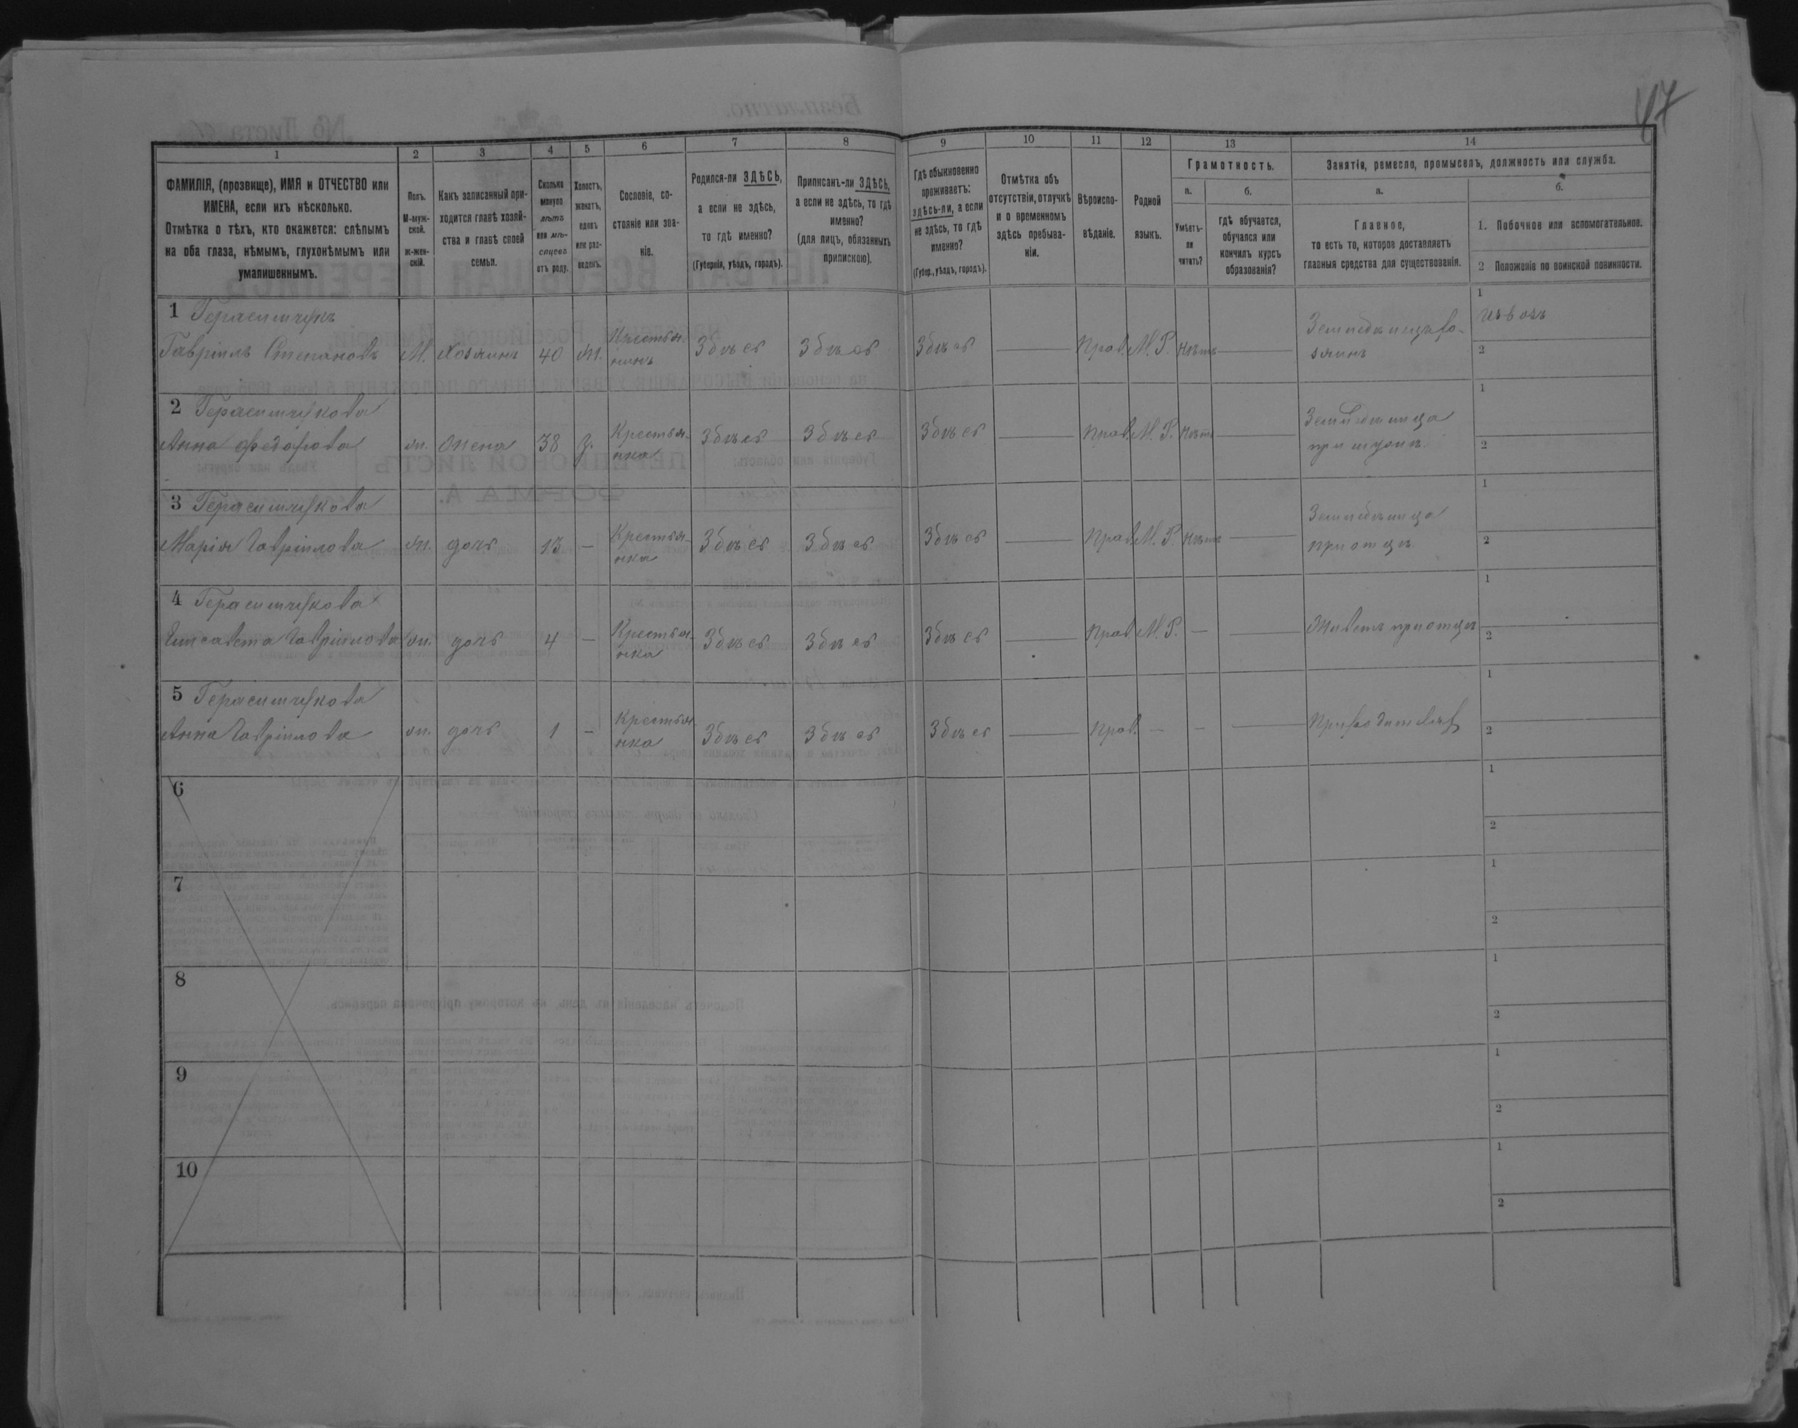 47
1 2 3 4 5 6 7 8 9 10 11 12 13 14
ФАМИЛІЯ, (прозвище), ИМЯ и ОТЧЕСТВО или
ИМЕНА, если ихъ нѣсколько.
Отмѣтка о тѣхъ, кто окажется: слѣпымъ
на оба глаза, нѣмымъ, глухонѣмымъ или
умалишеннымъ.
Полъ.
М-муж-
ской.
ж-жен-
скій.
Какъ записанный при-
ходится главѣ хозяй-
ства и главѣ своей
семьи.
Сколько
минуло
лѣтъ
или мѣ-
сяцевъ
отъ роду.
Холостъ,
женатъ,
вдовъ
или раз-
веденъ.
Сословіе, со-
стояніе или зва-
ніе.
Родился-ли ЗДѢСЬ,
а если не здѣсь,
то гдѣ именно?
(Губернія, уѣздъ, городъ).
Приписанъ-ли ЗДѢСЬ,
а если не здѣсь, то гдѣ
именно?
(для лицъ, обязанныхъ
припискою).
Гдѣ обыкновенно
проживаетъ:
здѣсь-ли, а если
не здѣсь, то гдѣ
именно?
(Губер., уѣздъ, городъ).
Отмѣтка объ
отсутствіи, отлучкѣ
и о временномъ
здѣсь пребыва-
ніи.
Вѣроиспо-
вѣданіе.
Родной
языкъ.
Грамотность.
а.
б.
Умѣетъ-
ли
читать?
гдѣ обучается,
обучался или
кончилъ курсъ
образованія?
Занятія, ремесло, промыселъ, должность или служба.
а.
б.
Главное,
то есть то, которое доставляетъ
главныя средства для существованія.
1. Побочное или вспомогательное.
2 Положеніе по воинской повинности.
1 Герасимчукъ
Гавріилъ Степановъ М. Хозяинъ 40 ж. Крестья-
нинъ Здѣсь Здѣсь Здѣсь Прав. М. Р. Нѣтъ Земледѣлецъ хо-
зяинъ
1
2
2 Герасимчукова
Анна Федорова ж. Жена 38 з. Крестья-
нка Здѣсь Здѣсь Здѣсь Прав. М. Р. Нѣтъ Земледѣлица
при мужѣ
1
2
3 Герасимчукова
Марія Гавріилова ж. дочь 13 – Крестья-
нка Здѣсь Здѣсь Здѣсь Прав. М. Р. Нѣтъ Земледѣлица
при отцѣ
1
2
4 Герасимчукова
Елисавета Гавріилова ж. дочь 4 – Крестья-
нка Здѣсь Здѣсь Здѣсь Прав. М. Р. – Живетъ при отцѣ
1
2
5 Герасимчукова
Анна Гавріилова ж. дочь 1 – Крестья-
нка Здѣсь Здѣсь Здѣсь Прав. – – При родителяхъ
1
2
6
1
2
7
1
2
8
1
2
9
1
2
10
1
2